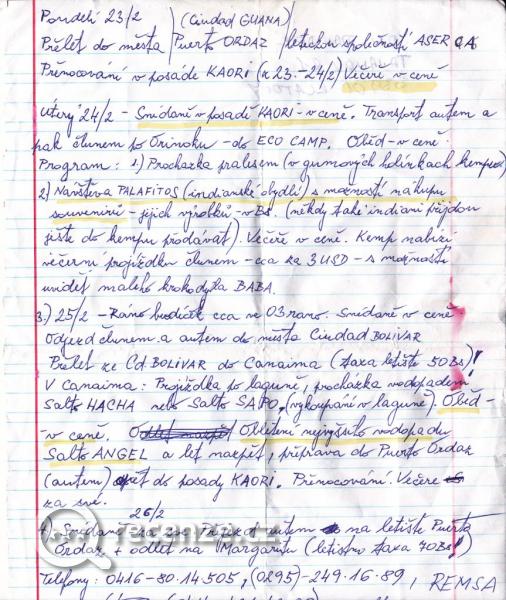 Pondělí 23/2 (Ciudad GUANA)
Přelet do města Puerto ORDAZ leteckou společností ASERCA
Přenocování v posádě KAORI (z 23.-24/2) Večeře v ceně
Úterý 24/2 - Snídaně v posadě KAORI - v ceně. Transport autem a
pak člunem po Orinoku - do ECO CAMP. Oběd - v ceně.
Program: 1.) Procházka pralesem (v gumových holínkách kempu)
2) Navštěva PALAFITOS (indianské obydlí) s možností nákupu
souvenirů - jejich výrobků - v Bs. (někdy také indiani přijdou
ještě do kempu prodávat). Večeře v ceně. Kemp nabízí
večerní projížďku člunem - cca za 3 USD - s možností
vidět malého krokodýla BABA.
3.) 25/2 - Ráno budíček cca ve 03 rano. Snídaně v ceně
Odjezd člunem a autem do města Ciudad BOLIVAR
Přelet ze Cd. BOLIVAR do Canaima (taxa letiště 50 Bs)!
V Canaima: Projížďka po laguně, procházka vodopadem
Salto HACHA nebo Salto SAPO, (vykoupání v laguně). Oběd -
- v ceně. Obletění nejvyššího vodopadu
Salto ANGEL a let nazpět, příprava do Puerto Ordaz
(autem) opět do posady KAORI. Přenocování. Večeře
za své.
26/2
4) Snídaně autem na letiště Puerto
Ordaz + odlet na Margaritu (letištní taxa 70 Bs)!
Telefony: 0416-80.14.505, (0295)-249.16.89, REMSA
recenze.cz